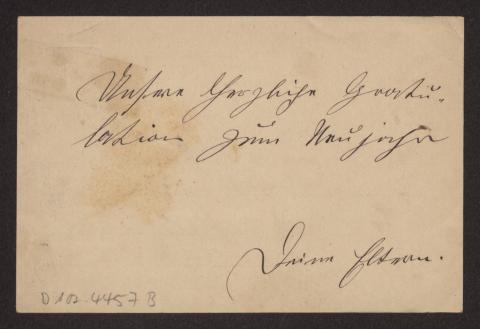 Unsere Herzliche Gratu-
lation zum Neujahr
Deine Eltern.
D 102-4457 B